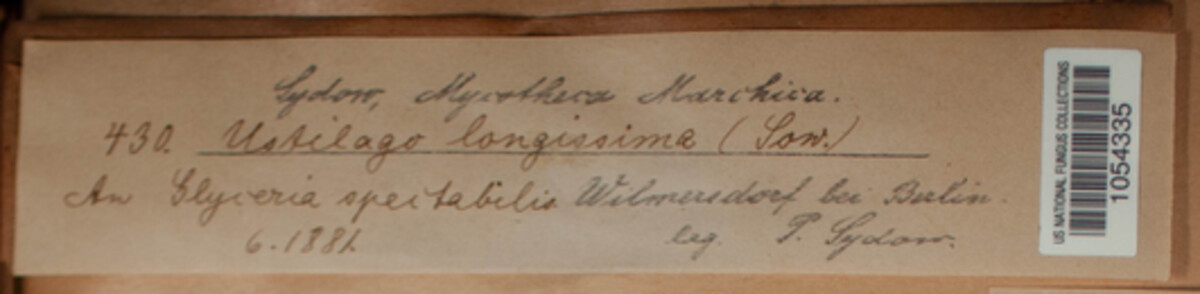 Sydow, Mycotheca Marchica.
430. Ustilago longissima (Sow.)
An Glyceria spectabilis Wilmersdorf bei Berlin.
6.1881. leg. P. Sydow.
US NATIONAL FUNGUS COLLECTIONS
1054335